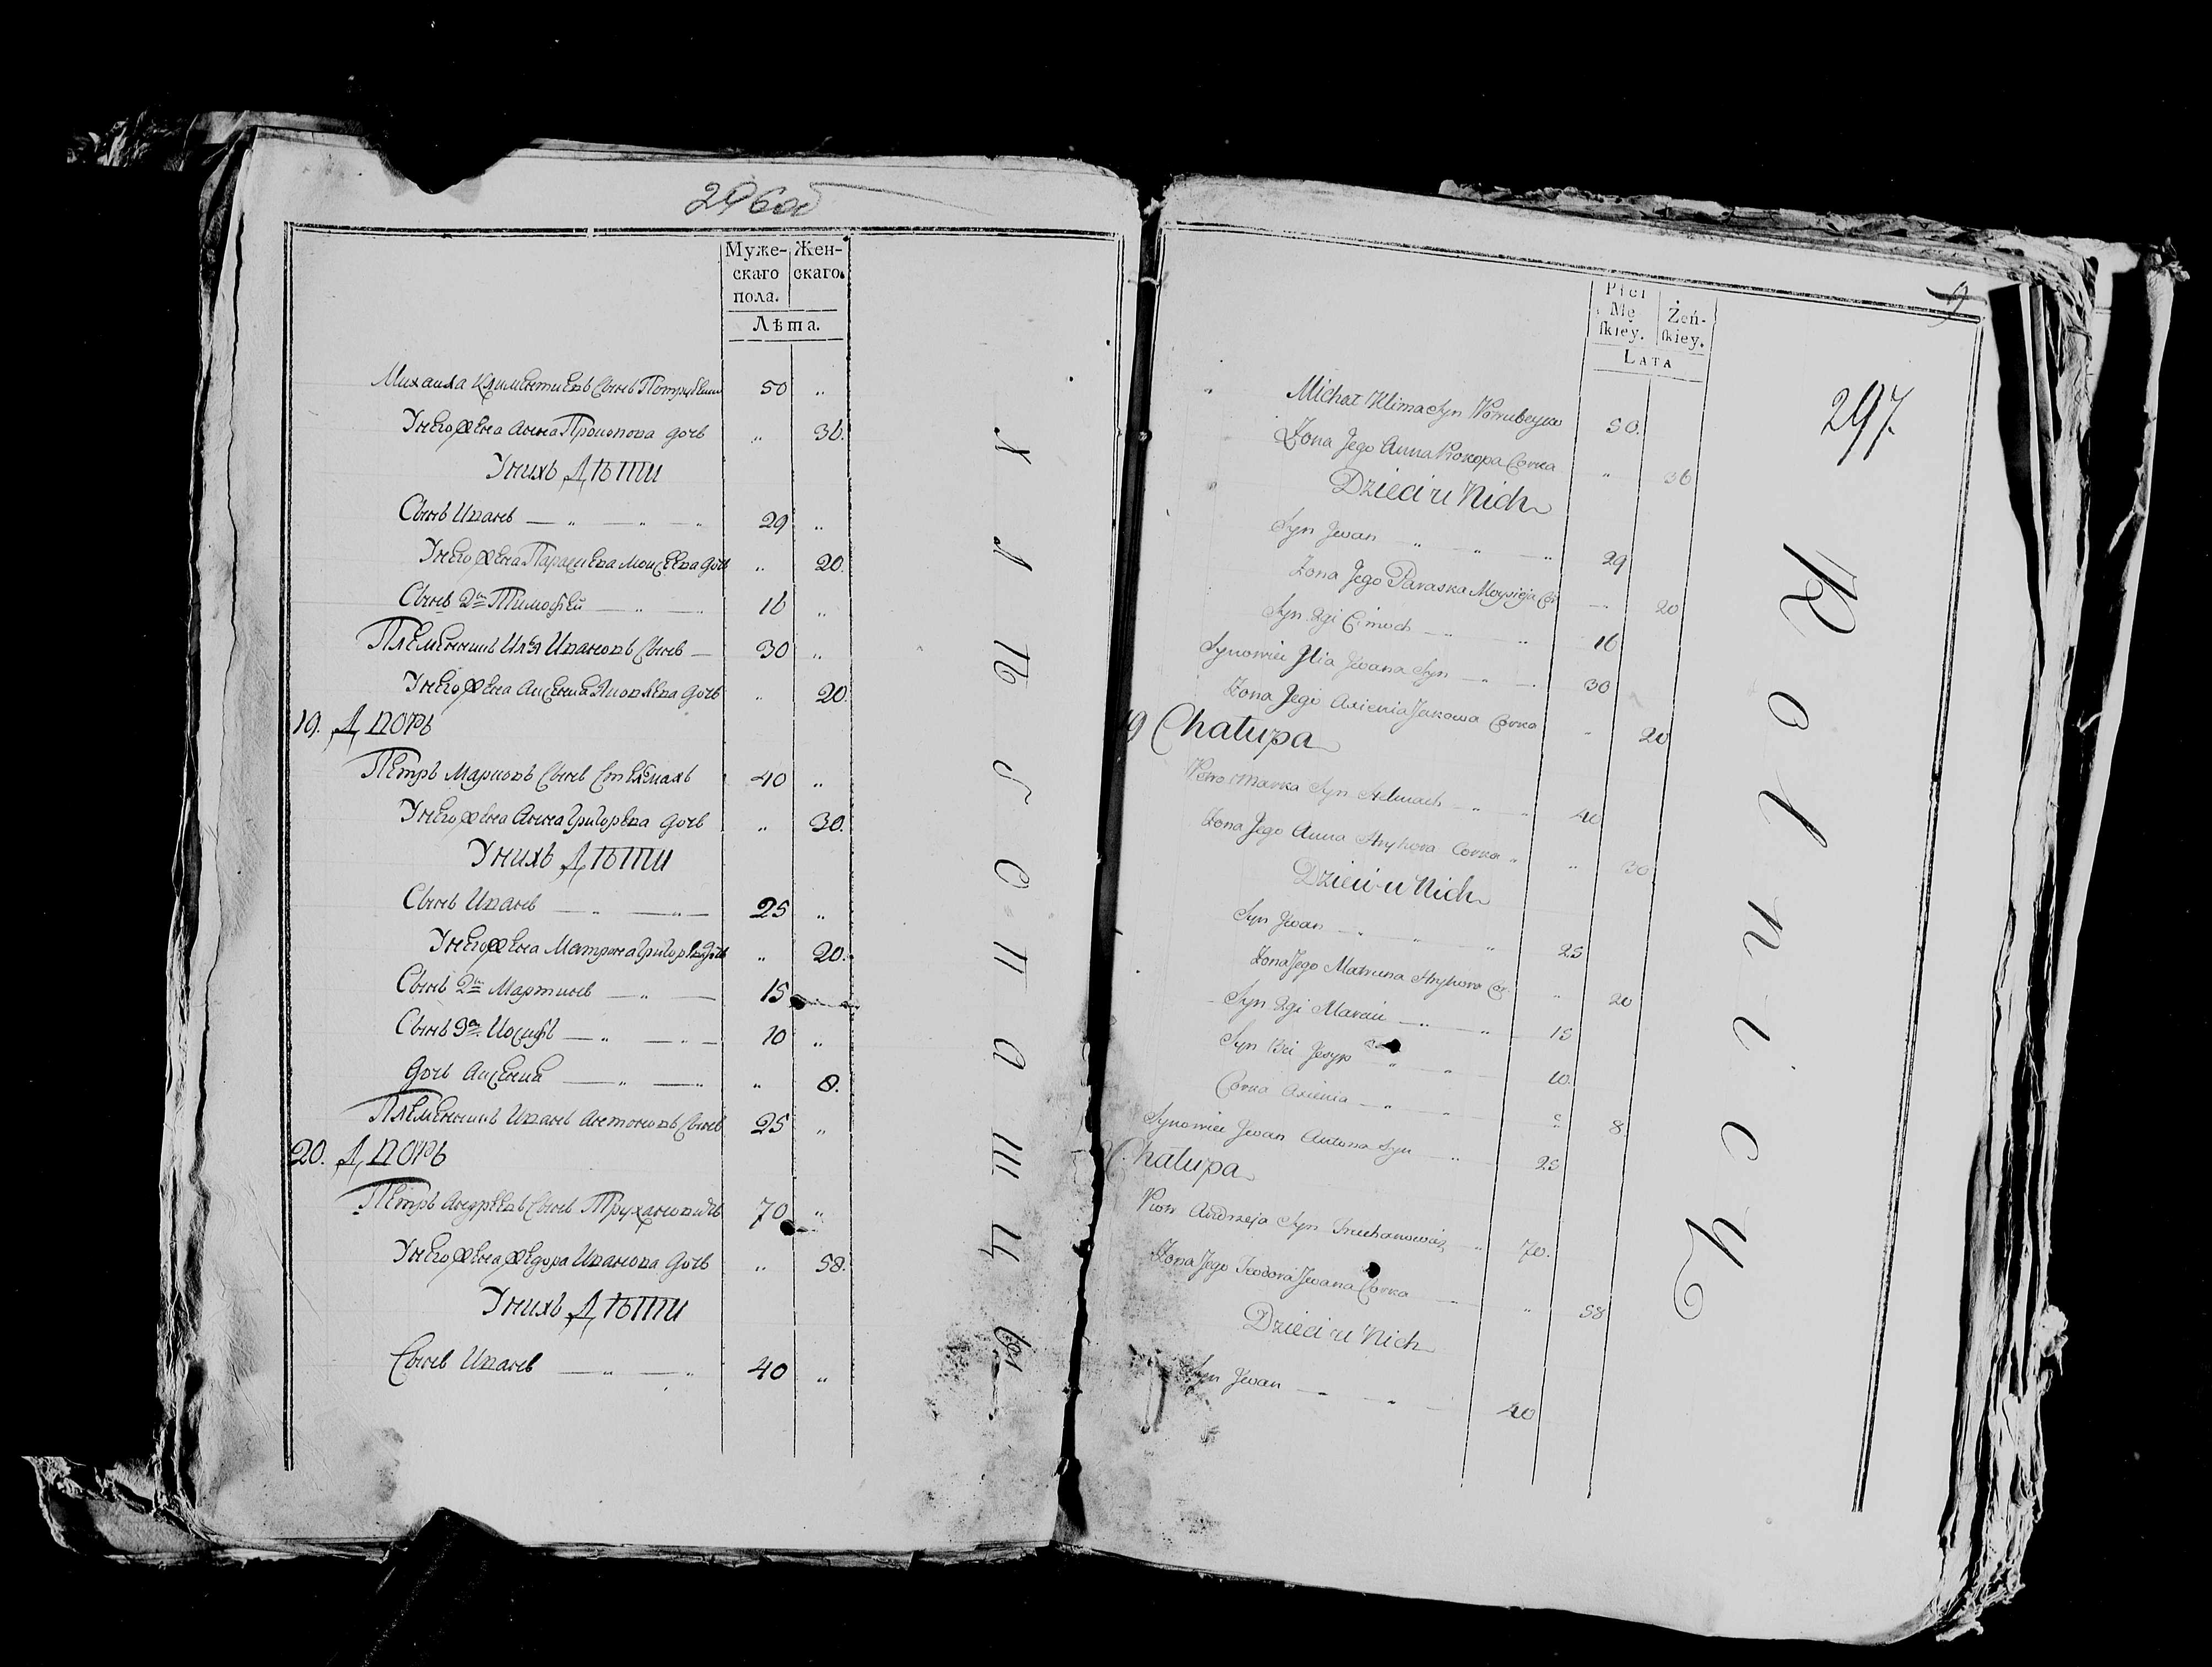 296 об
Муже-
скаго
пола.
Жен-
скаго.
Лѣта.
Михаила Климентиевъ Сынъ 50 „
Унего жена Анна Прокопова дочь „ 36.
Унихъ Дѣти
Сынъ Иванъ — „ — „ — „ 29 „
Унего жена Параскева Моисеева дочь „ 20.
Сынъ 2й Тимофей — „ — 16 „
Племянникъ Илья Ивановъ Сынъ — 30 „
Унего жена Аксения Яковлева дочь „ 20.
19. Дворъ
Петръ Марковъ Сынъ Стельмахъ 40 „
Унего жена Анна Григорьева дочь „ 30.
Унихъ Дѣти
Сынъ Иванъ — „ — „ — 25 „
Унего жена Матрона Григорьева дочь „ 20.
Сынъ 2й Мартинъ — „ — 15
Сынъ 3й Иосифъ — „ — „ — 10 „
дочь Аксения — „ — „ „ 8.
Племянникъ Иванъ Антоновъ Сынъ 25 „
20. Дворъ
Петръ Андреевъ Сынъ Трухановичъ 70 „
Унего жена Федора Иванова дочь „ 58.
Унихъ Дѣти
Сынъ Иванъ — „ — „ 40 „
Płci
Mę
ſkiey.
Żeń-
ſkiey.
LATA
297.
Michał Klima Syn 50.
Żona Jego Anna Prokopa Corka „ 36
Dzieci u Nich
Syn Jwan „ „ — „ 29
Żona Jego Paraska Moysieja Cor — „ 20
Syn 2gi Cimoch — „ 16
Synowiec Ilia Jwana Syn — „ — 30
Żona Jego Axienia Jakowa Corka „ 20
19 Chałupa
Petro Marka Syn Stelmach — „ „ 40
Żona Jego Anna Hryhora Corka „ „ 30
Dzieci u Nich
Syn Jwan — „ „ „ 25
Żona Jego Matruna Hryhora Cor. „ 20
Syn 2gi Marcin — „ — „ 15
Syn 3ci Jozyp „ „ 10.
Corka Axienia — „ „ „ 8
Synowiec Jwan Antona Syn — „ 25
Chałupa
Piotr Andrzeja Syn Truchanowicz „ 70.
Żona Jego Teodora Jwana Corka — „ 58
Dzieci u Nich
Syn Jwan — „ „ — 40
R o l n i c y